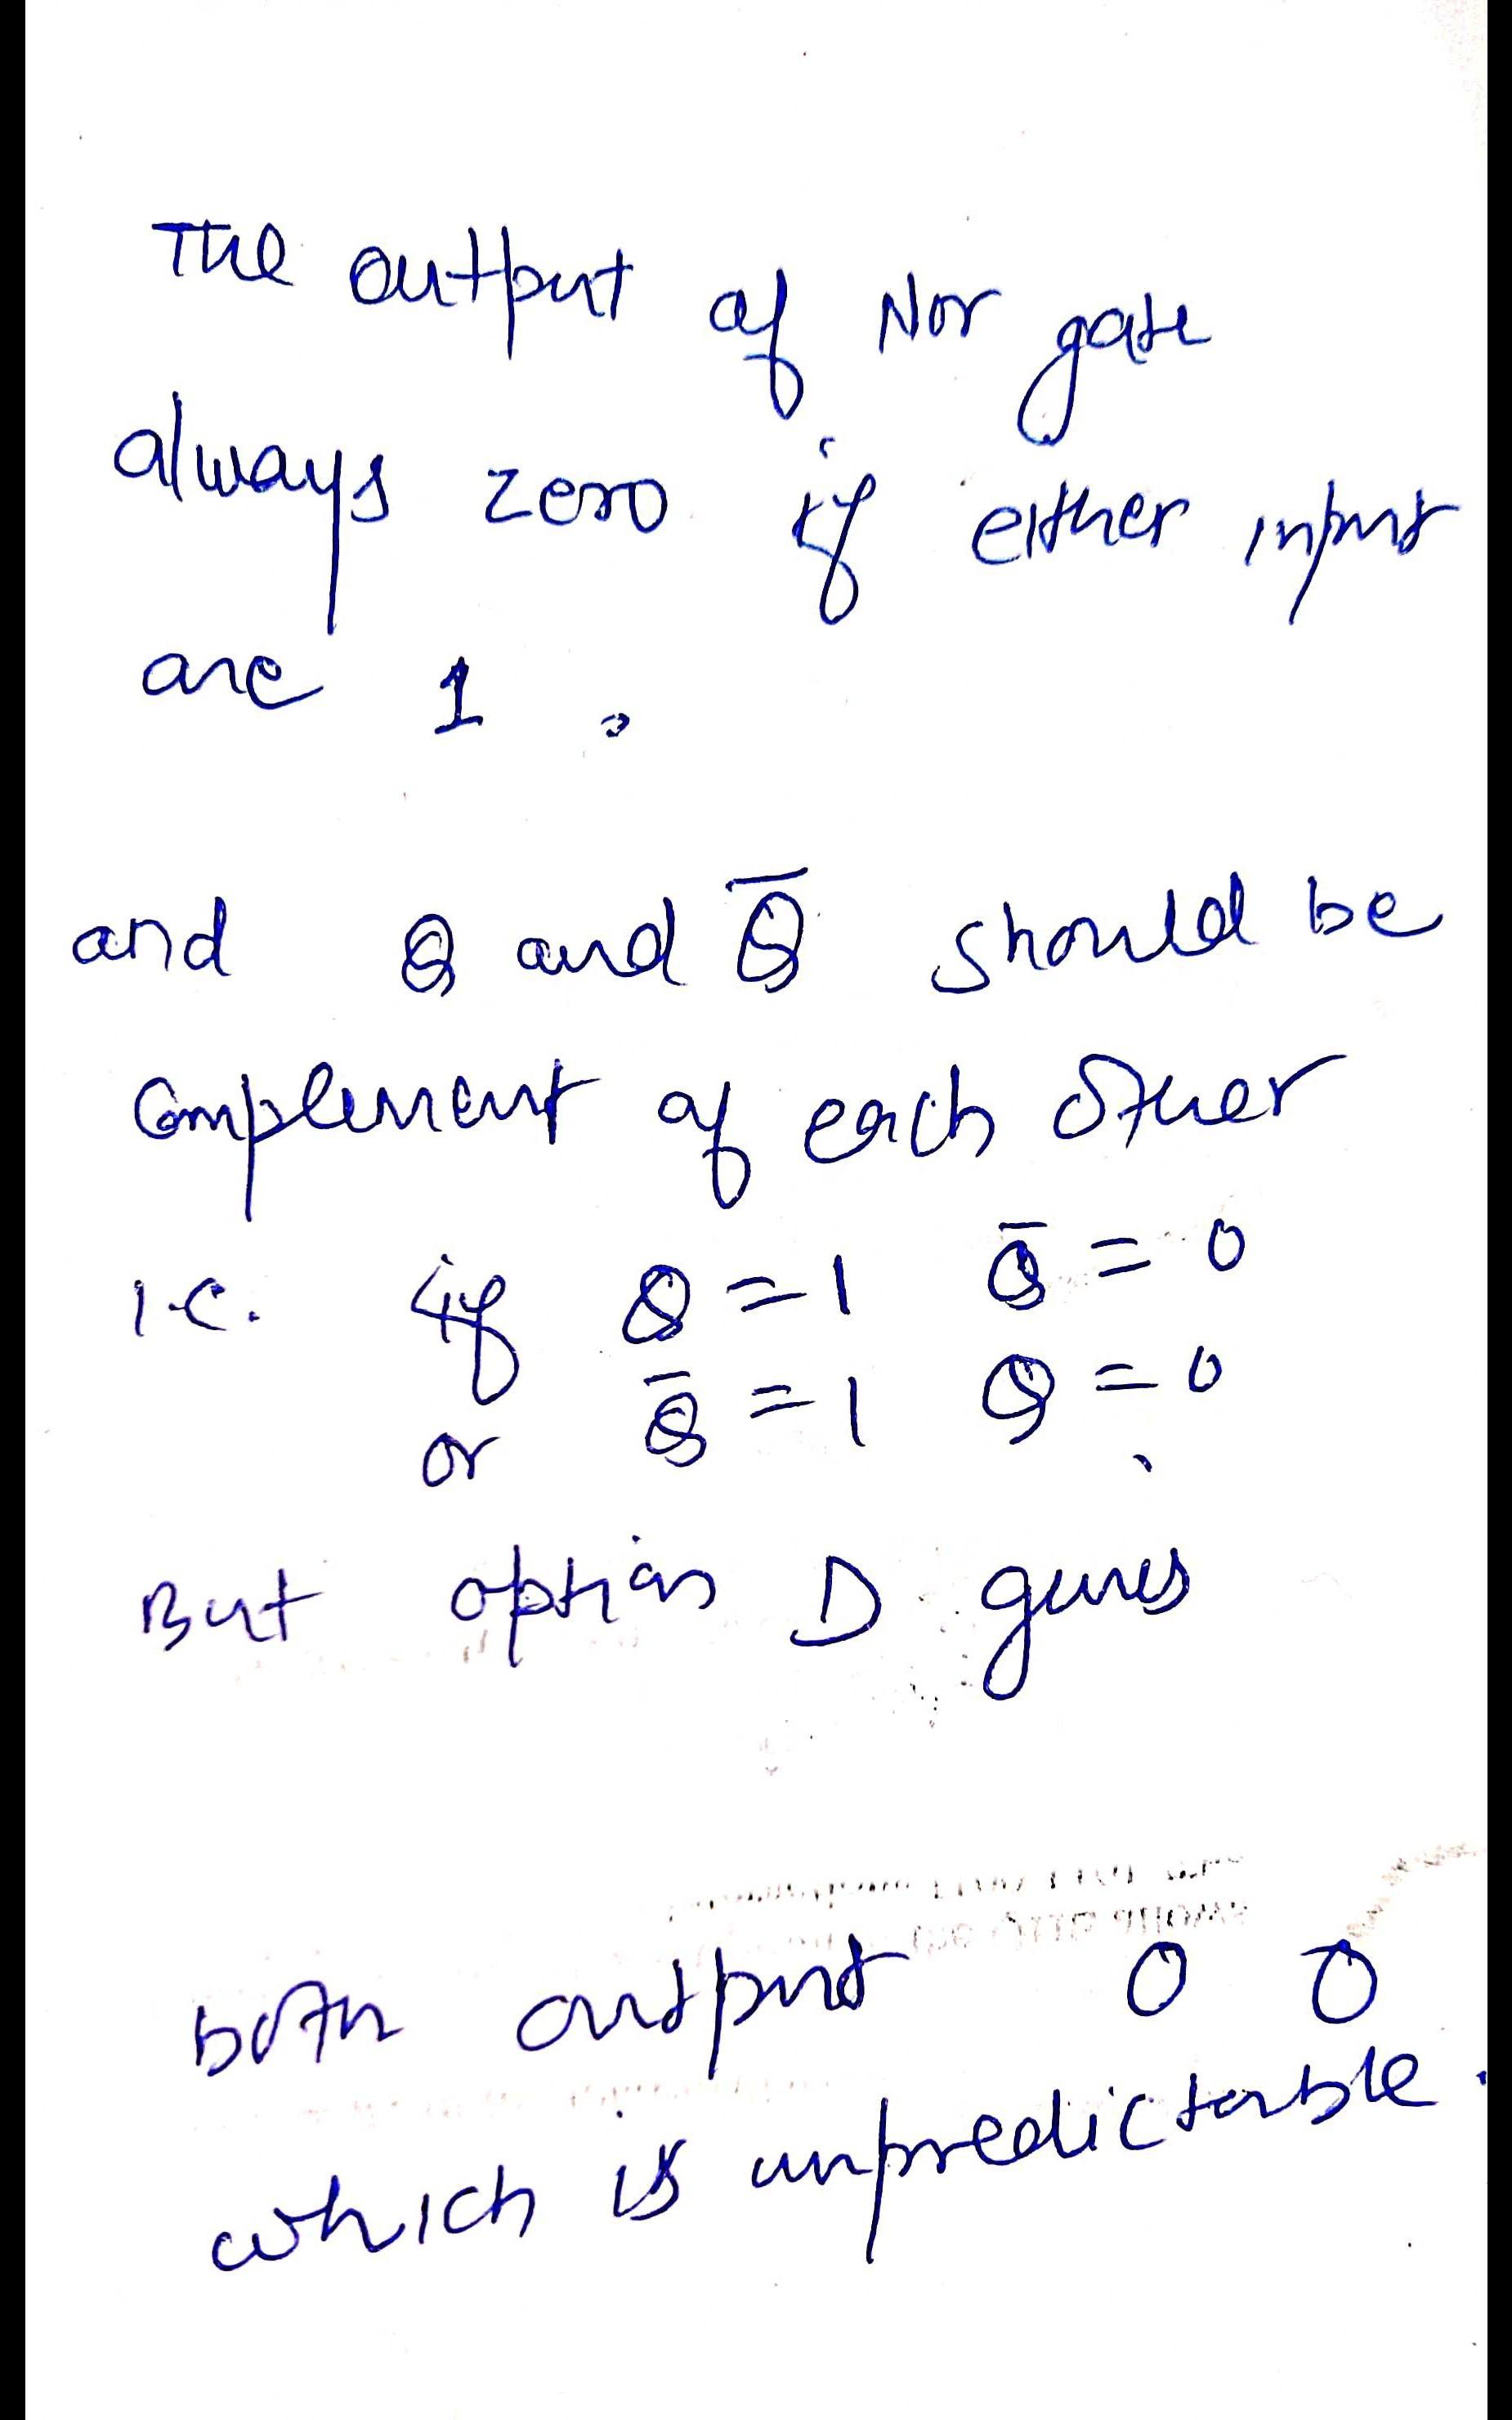 The output of Nor gate
always zero if either input
are 1 .
and Q and Q̅ should be
Complement of each other
i.e. if Q = 1 Q̅ = 0
or Q̅ = 1 Q = 0
But option D gives
both output 0 0
which is unpredictable.